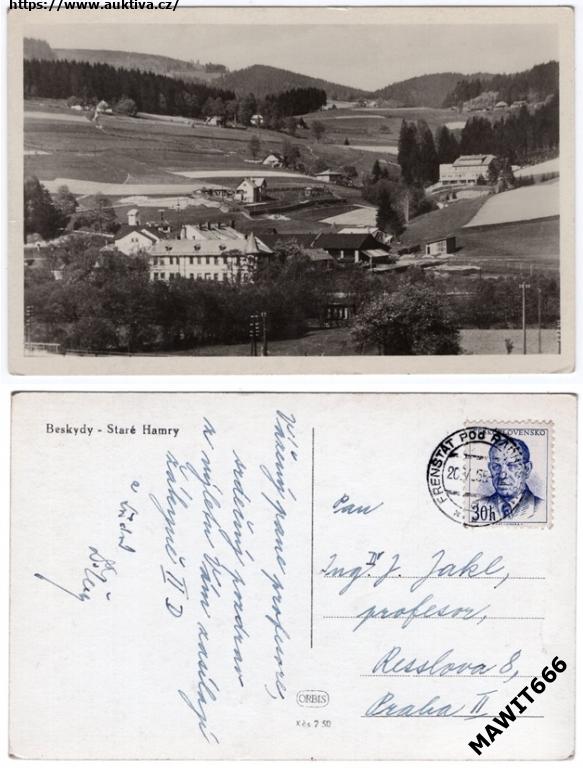 https://www.auktiva.cz/
Beskydy - Staré Hamry
Vážený pane profesore,
srdečný pozdrav
z výletu Vám zasílají
žákyně II D
a
FRENŠTÁT POD RADH
ČESKOSLOVENSKO
30h
Pan
Ing. Dr J. Jakl,
profesor,
Resslova 8,
Praha II
ORBIS
Kčs 2 50
MAWIT666